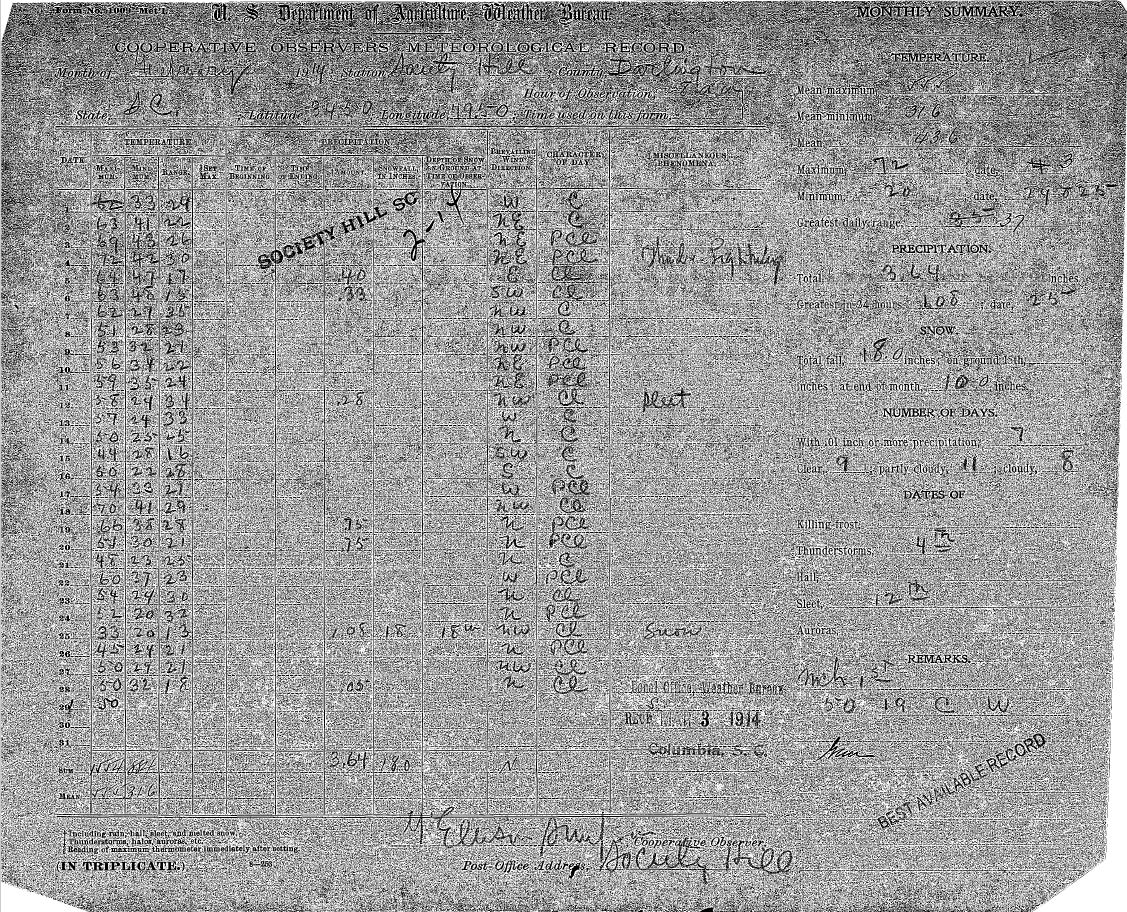 Form No. 1009—Met'l
U. S. Department of Agriculture, Weather Bureau.
COOPERATIVE OBSERVERS' METEOROLOGICAL RECORD.
Month of 1914 Station Society Hill County Darlington
Hour of Observation,
State, S.C. Latitude, 3450 Longitude, 7950 Time used on this form,
TEMPERATURE PRECIPITATION
DATE MAXIMUM MINIMUM RANGE SET MAX. TIME OF BEGINNING TIME OF ENDING AMOUNT SNOWFALL, IN INCHES DEPTH OF SNOW ON GROUND AT TIME OF OBSERVATION PREVAILING WIND DIRECTION CHARACTER OF DAY MISCELLANEOUS PHENOMENA
SOCIETY HILL SC
2-14
1 62 33 29 W C
2 63 41 22 NE C
3 69 43 26 NE PCl
4 72 42 30 NE PCl
5 64 47 17 .40 E Cl
6 63 48 15 .33 SW Cl
7 62 27 35 NW C
8 51 28 23 NW C
9 53 32 21 NW PCl
10 56 34 22 NE PCl
11 59 35 24 NE PCl
12 58 24 34 .28 NW Cl Sleet
13 57 24 33 W C
14 50 25 25 N C
15 44 28 16 SW C
16 50 22 28 S C
17 54 33 21 W PCl
18 70 41 29 NW Cl
19 66 38 28 .75 N PCl
20 51 30 21 .75 N PCl
21 48 23 25 N C
22 60 37 23 W PCl
23 54 24 30 N Cl
24 52 20 32 N PCl
25 33 20 13 1.08 18 18in NW Cl Snow
26 45 24 21 N PCl
27 50 29 21 NW Cl
28 50 32 18 .05 N Cl
29 50
30
31
SUM 3.64 18.0 N
MEAN 316
Local Office, Weather Bureau
REC'D 3 1914
Columbia, S. C.
Including rain, hail, sleet, and melted snow.
Thunderstorms, halos, auroras, etc.
Reading of maximum thermometer immediately after setting.
(IN TRIPLICATE.)
Cooperative Observer.
Post-Office Address, Society Hill
MONTHLY SUMMARY.
TEMPERATURE.
Mean maximum,
Mean minimum, 316
Mean, 436
Maximum, 72 date, 3
Minimum, 20 date, 24 & 25
Greatest daily range, 37
PRECIPITATION.
Total 3.64 inches
Greatest in 24 hours, 108 ; date, 25
SNOW.
Total fall, 18.0 inches; on ground 15th,
inches; at end of month, 10.0 inches.
NUMBER OF DAYS.
With .01 inch or more precipitation, 7
Clear, 9 ; partly cloudy, 11 ; cloudy, 8
DATES OF
Killing frost,
Thunderstorms, 4th
Hail,
Sleet, 12th
Auroras,
REMARKS.
Mch 1st
50 19 C W
BEST AVAILABLE RECORD